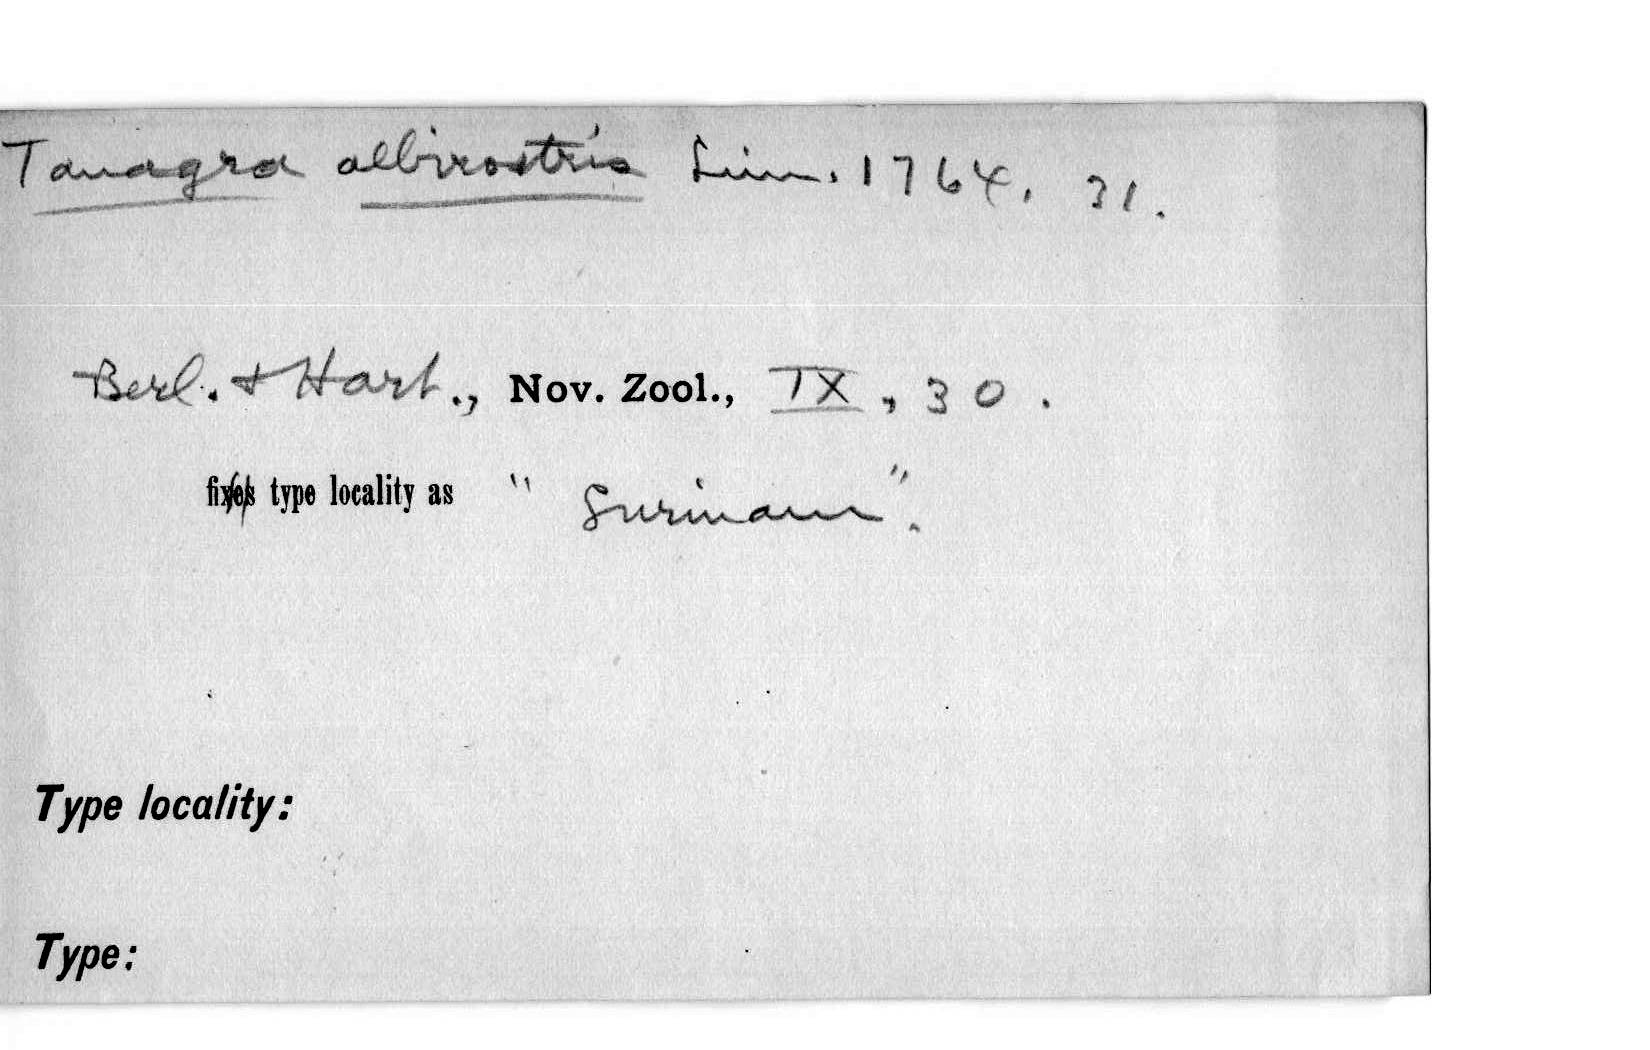 Tanagra albirostris Linn. 1764, 31.
Berl. & Hart., Nov. Zool., IX, 30.
fix type locality as "Surinam".
Type locality:
Type: